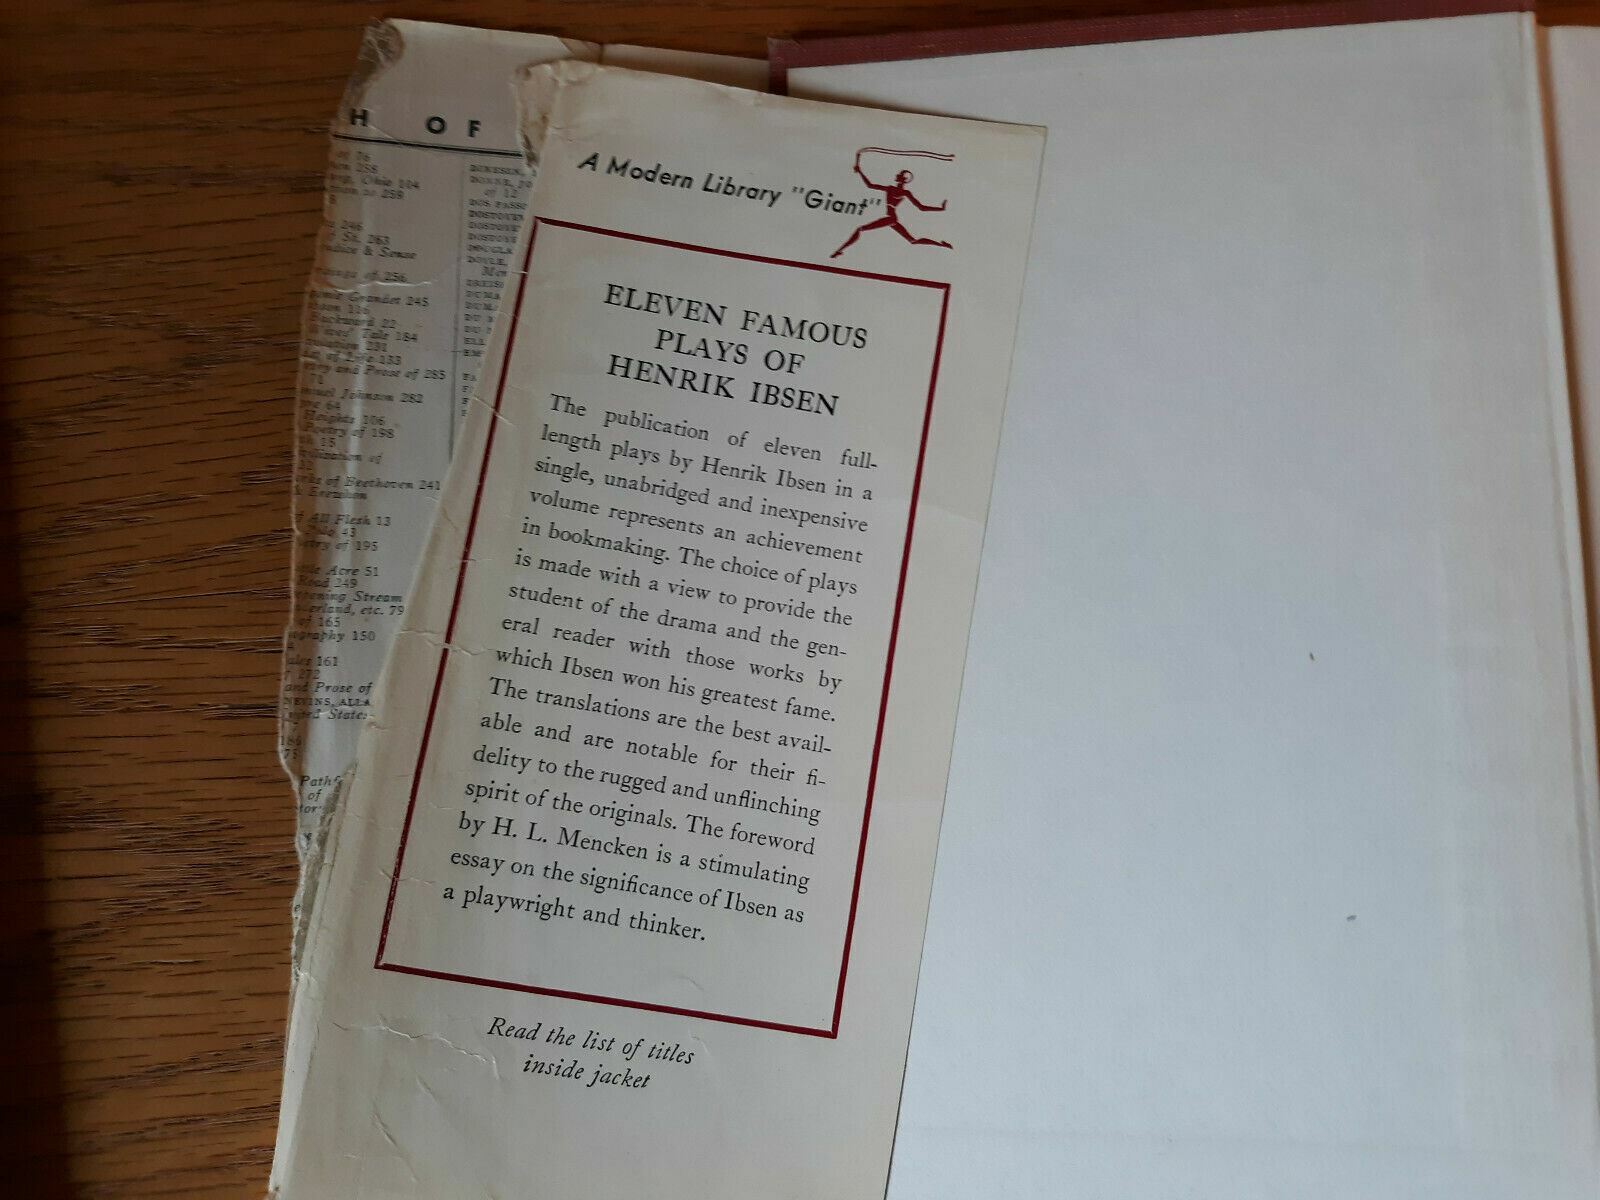 H OF
258
Ohio 104
259
246
Sh. 263
& Sense
of 256
Grandet 245
Backward 22
Tale 184
231
133
and Prose of 285
71
Johnson 282
64
Heights 106
Poetry of 198
15
of
of Beethoven 241
All Flesh 13
43
of 195
Acre 51
Road 249
Stream
etc. 79
of 165
150
161
272
and Prose of
NEVINS, ALLA
States
of
DOS PASSO
of 12
A Modern Library "Giant"
ELEVEN FAMOUS
PLAYS OF
HENRIK IBSEN
The publication of eleven full-
length plays by Henrik Ibsen in a
single, unabridged and inexpensive
volume represents an achievement
in bookmaking. The choice of plays
is made with a view to provide the
student of the drama and the gen-
eral reader with those works by
which Ibsen won his greatest fame.
The translations are the best avail-
able and are notable for their fi-
delity to the rugged and unflinching
spirit of the originals. The foreword
by H. L. Mencken is a stimulating
essay on the significance of Ibsen as
a playwright and thinker.
Read the list of titles
inside jacket